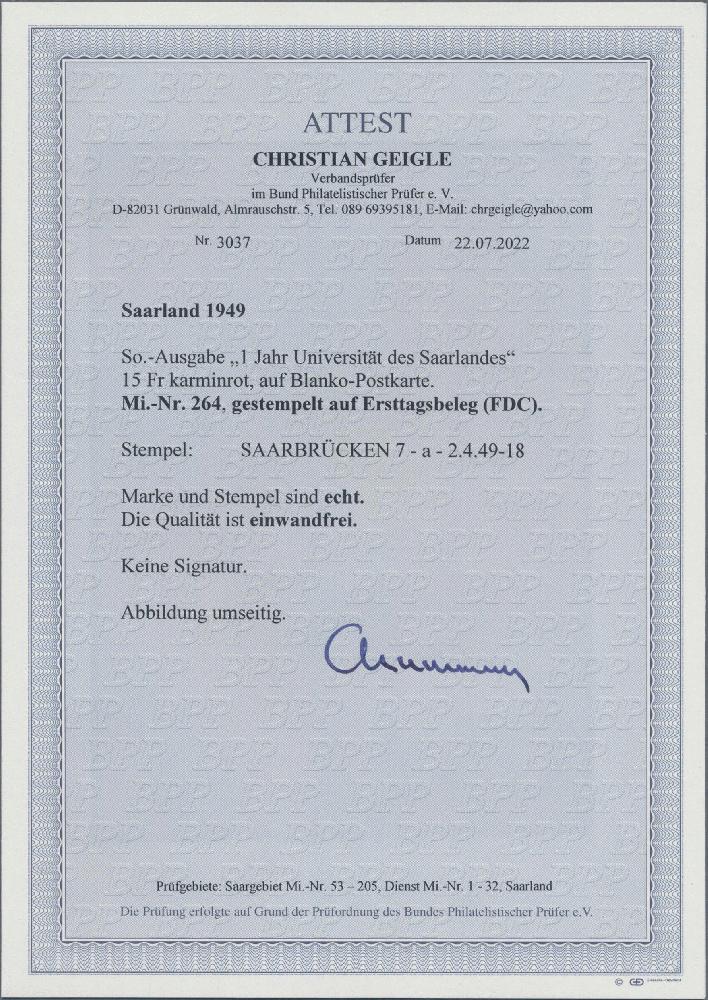 ATTEST
CHRISTIAN GEIGLE
Verbandsprüfer
im Bund Philatelistischer Prüfer e. V.
D-82031 Grünwald, Almrauschstr. 5, Tel. 089 69395181, E-Mail: chrgeigle@yahoo.com
Nr. 3037 Datum 22.07.2022
Saarland 1949
So.-Ausgabe „1 Jahr Universität des Saarlandes“
15 Fr karminrot, auf Blanko-Postkarte.
Mi.-Nr. 264, gestempelt auf Ersttagsbeleg (FDC).
Stempel: SAARBRÜCKEN 7 - a - 2.4.49-18
Marke und Stempel sind echt.
Die Qualität ist einwandfrei.
Keine Signatur.
Abbildung umseitig.
Prüfgebiete: Saargebiet Mi.-Nr. 53 – 205, Dienst Mi.-Nr. 1 - 32, Saarland
Die Prüfung erfolgte auf Grund der Prüfordnung des Bundes Philatelistischer Prüfer e.V.